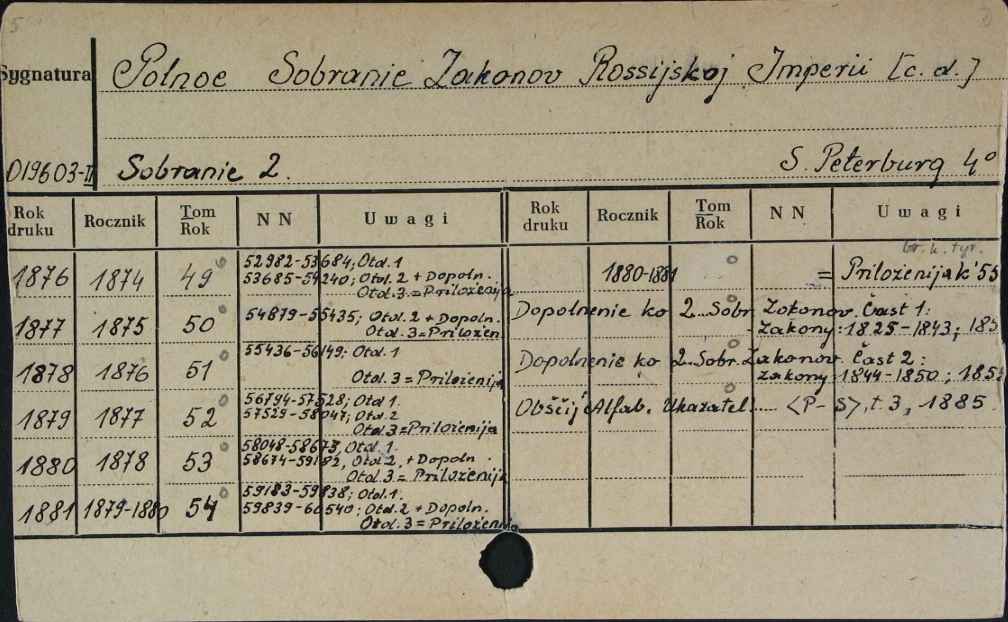 Sygnatura
Polnoe Sobranie Zakonov Rossijskoj Imperii [c. d.]
019603-II
Sobranie 2.
S. Peterburg 4°
Rok druku Rocznik Tom Rok N N Uwagi
1876 1874 49 52982-53684, Otd. 1
53685-54240; Otd. 2 + Dopoln.
Otd. 3. = Priloženija
1877 1875 50 54879-55435; Otd. 2 + Dopoln.
Otd. 3 = Priložen
1878 1876 51 55436-56149: Otd. 1
Otd. 3 = Priloženija
1879 1877 52 56794-57528; Otd. 1.
57529-58047; Otd. 2
Otd. 3 = Priloženija
1880 1878 53 58048-58673, Otd. 1.
58674-59182, Otd. 2. + Dopoln.
Otd. 3 = Priloženija
1881 1879-1880 54 59183-59838; Otd. 1.
59839-60540; Otd. 2 + Dopoln.
Otd. 3 = Priloženija
Rok druku Rocznik Tom Rok N N Uwagi
br. k. tyt.
1880-1881 = Priloženija k' 55
Dopolnenie ko 2. Sobr. Zakonov. Čast 1:
zakony: 1825-1843; 185
Dopolnenie ko 2. Sobr. Zakonov. Čast 2:
zakony 1844-1850; 185
Obščij Alfab. Ukazatel .... <P-S>, t. 3, 1885.